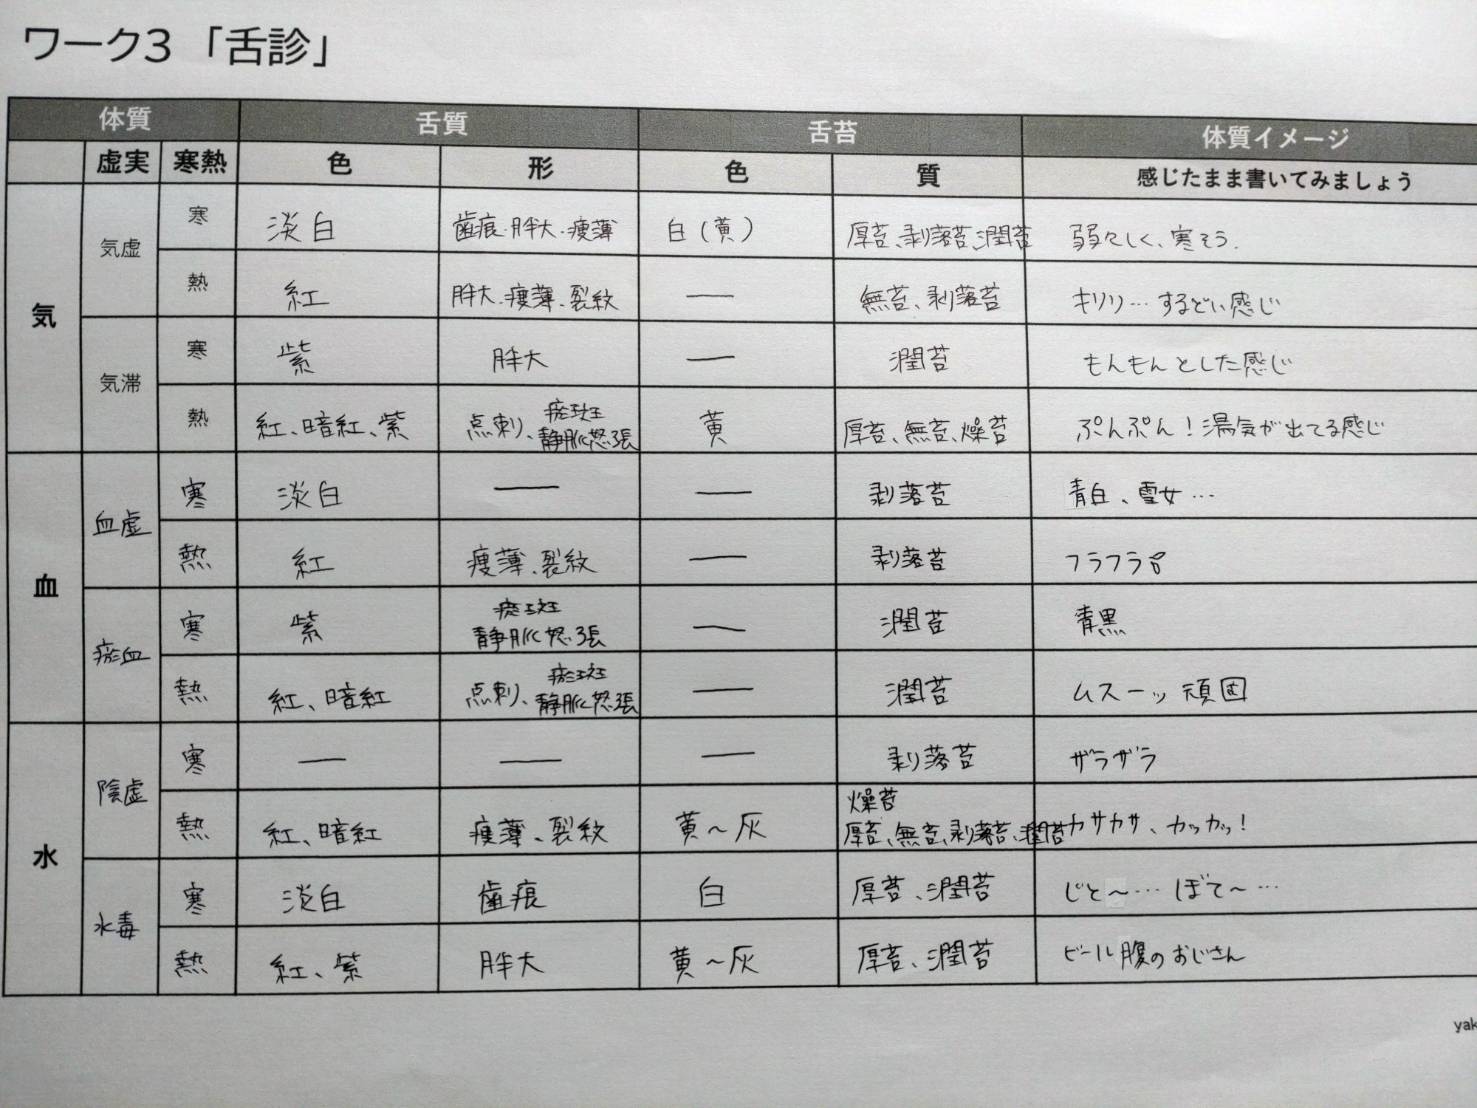 ワーク3 「舌診」
体質 舌質 舌苔 体質イメージ
虚実 寒熱 色 形 色 質 感じたまま書いてみましょう
気 気虚 寒 淡白 歯痕・胖大・痩薄 白(黄) 厚苔、剥落苔、潤苔 弱々しく、寒そう.
熱 紅 胖大・痩薄・裂紋 — 無苔、剥落苔 キリリ…するどい感じ
気滞 寒 紫 胖大 — 潤苔 もんもんとした感じ
熱 紅、暗紅、紫 点刺、瘀斑 静脈怒張 黄 厚苔、無苔、燥苔 ぷんぷん!湯気が出てる感じ
血 血虚 寒 淡白 — — 剥落苔 青白、雪女…
熱 紅 痩薄、裂紋 — 剥落苔 フラフラ
瘀血 寒 紫 瘀斑 静脈怒張 — 潤苔 青黒
熱 紅、暗紅 点刺、瘀斑 静脈怒張 — 潤苔 ムスーッ 頑固
水 陰虚 寒 — — — 剥落苔 ザラザラ
熱 紅、暗紅 痩薄、裂紋 黄〜灰 燥苔 厚苔、無苔、剥落苔、潤苔 カサカサ、カッカッ!
水毒 寒 淡白 歯痕 白 厚苔、潤苔 じと〜… ぼて〜…
熱 紅、紫 胖大 黄〜灰 厚苔、潤苔 ビール腹のおじさん
yak